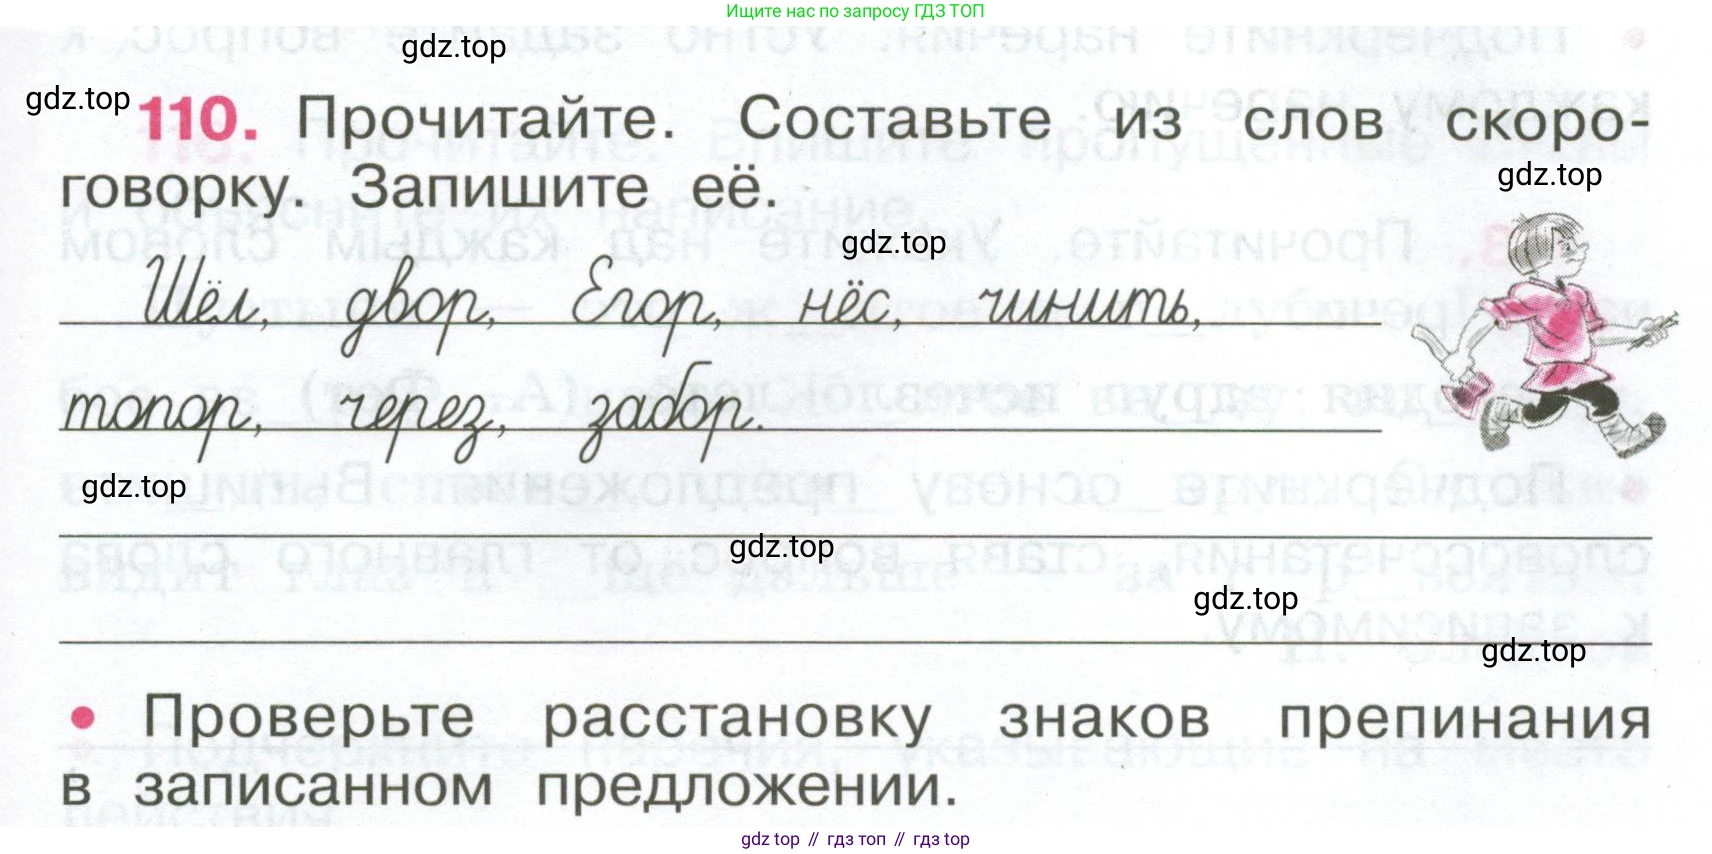 Ищите нас по запросу ГДЗ ТОП
gdz.top
gdz.top
110. Прочитайте. Составьте из слов скоро-
gdz.top
говорку. Запишите её.
gdz.top
Шёл, двор, Егор, нёс, чинить,
топор, через, забор.
gdz.top
gdz.top
gdz.top
gdz.top
• Проверьте расстановку знаков препинания
в записанном предложении.
gdz top // гдз топ // gdz top